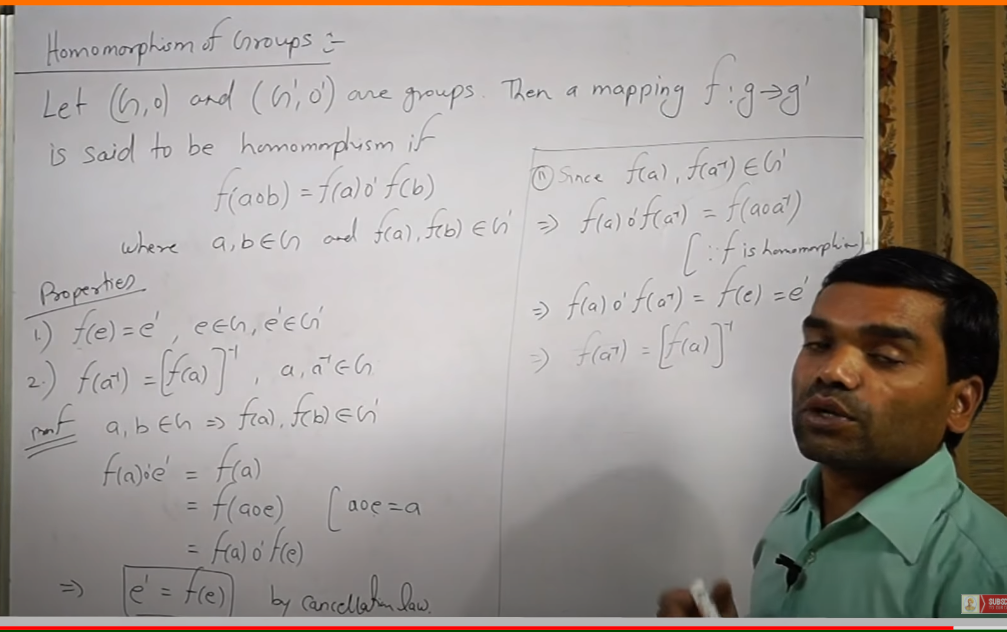 Homomorphism of Groups :-
Let (G, o) and (G', o') are groups. Then a mapping f : g → g'
is said to be homomorphism if
f(aob) = f(a) o' f(b)
where a, b ∈ G and f(a), f(b) ∈ G'
Properties
1.) f(e) = e' , e ∈ G, e' ∈ G'
2.) f(a⁻¹) = [f(a)]⁻¹ , a, a⁻¹ ∈ G
proof a, b ∈ G ⇒ f(a), f(b) ∈ G'
f(a) o' e' = f(a)
= f(aoe) [ aoe = a
= f(a) o' f(e)
⇒ e' = f(e) by cancellation law.
(ii) Since f(a), f(a⁻¹) ∈ G'
⇒ f(a) o' f(a⁻¹) = f(aoa⁻¹)
[ ∵ f is homomorphism]
⇒ f(a) o' f(a⁻¹) = f(e) = e'
⇒ f(a⁻¹) = [f(a)]⁻¹